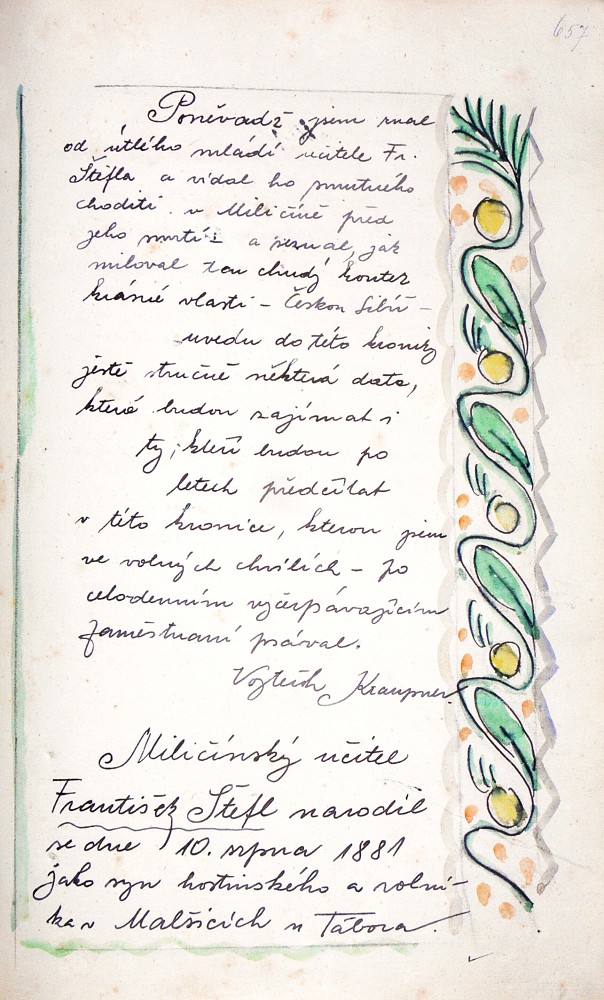 657
Poněvadž jsem znal
od útlého mládí učitele Fr.
Štefla a vídal ho smutného
choditi v Miličíně před
jeho smrtí - a seznal, jak
miloval ten chudý koutek
krásné vlasti - Českou Sibiř -
uvedu do této kroniky
ještě stručně některá data,
která budou zajímat i
ty, kteří budou po
letech předčítat
v této kronice, kterou jsem
ve volných chvílích - po
celodenním vyčerpávajícím
zaměstnaní psával.
Vojtěch Kraupner.
Miličínský učitel
František Štefl narodil
se dne 10. srpna 1881
jako syn hostinského a rolní-
ka v Malšicích u Tábora.